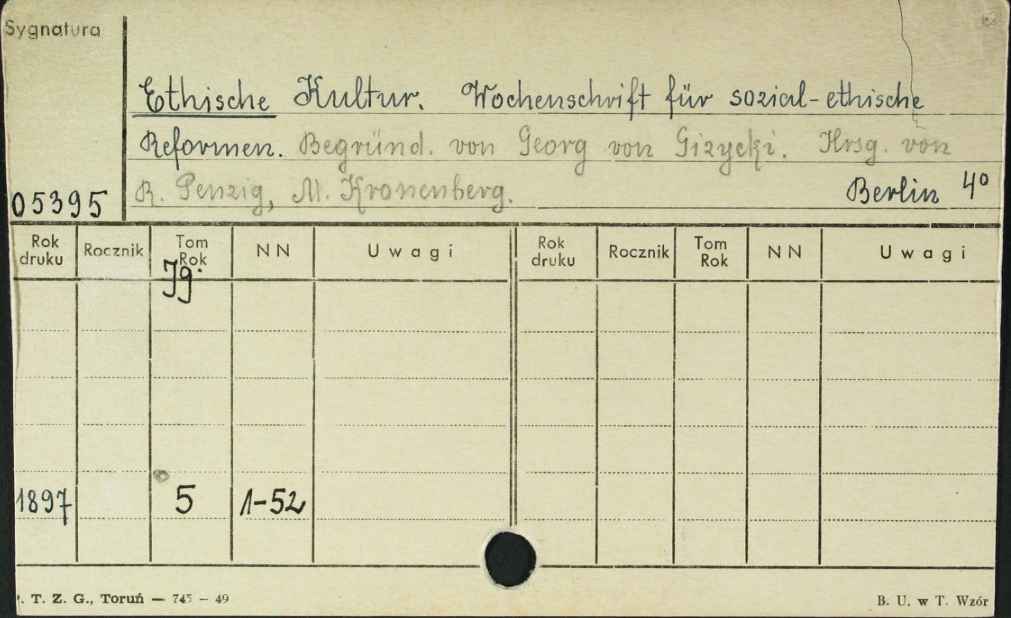 Sygnatura
Ethische Kultur. Wochenschrift für sozial-ethische
Reformen. Begründ. von Georg von Gizycki. Hrsg. von
R. Penzig, M. Kronenberg. Berlin 4°
05395
Rok druku Rocznik Tom Rok NN Uwagi Rok druku Rocznik Tom Rok NN Uwagi
Jg.
1897 5 1-52
. T. Z. G., Toruń — 745 — 49 B. U. w T. Wzór